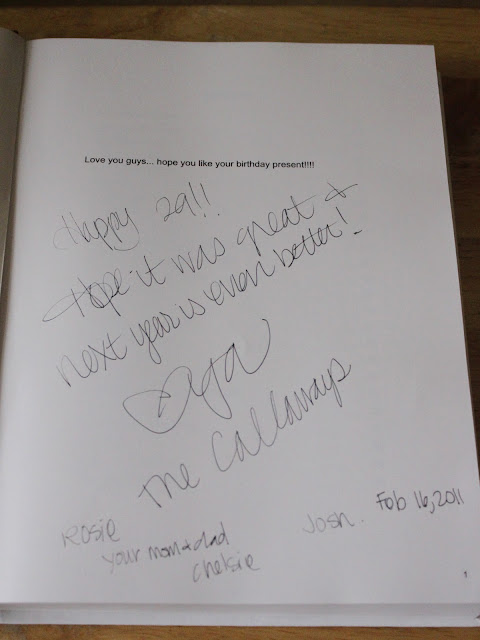 Love you guys... hope you like your birthday present!!!!
Happy 29!!
Hope it was great &
next year is even better!
The Callaways
Rosie
your mom & dad
Chelsie
Josh. Feb 16, 2011